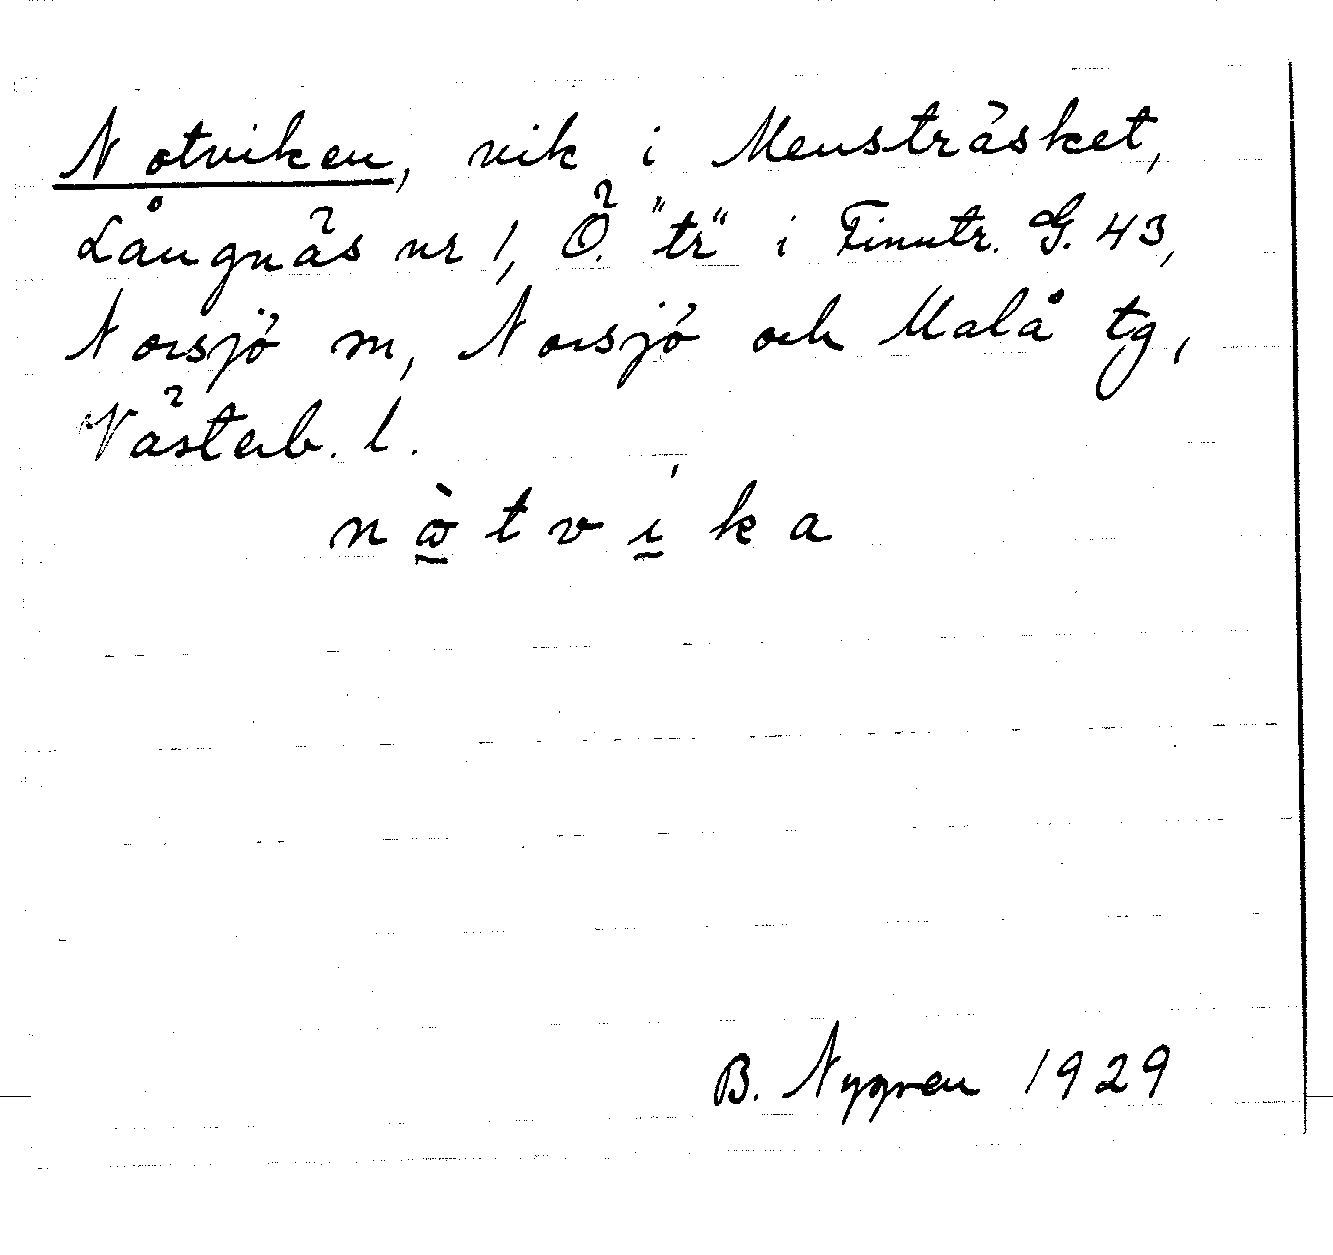 Notviken, vik i Mensträsket,
Långnäs nr 1, Ö. "tr" i Finntr. G. 43,
Norsjö m, Norsjö och Malå tg,
Västerb. l.
nὼ̖tvika
B. Nygren 1929